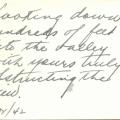 Looking down
hundreds of feet
into the valley
with yours truly
obstructing the
view.
/42